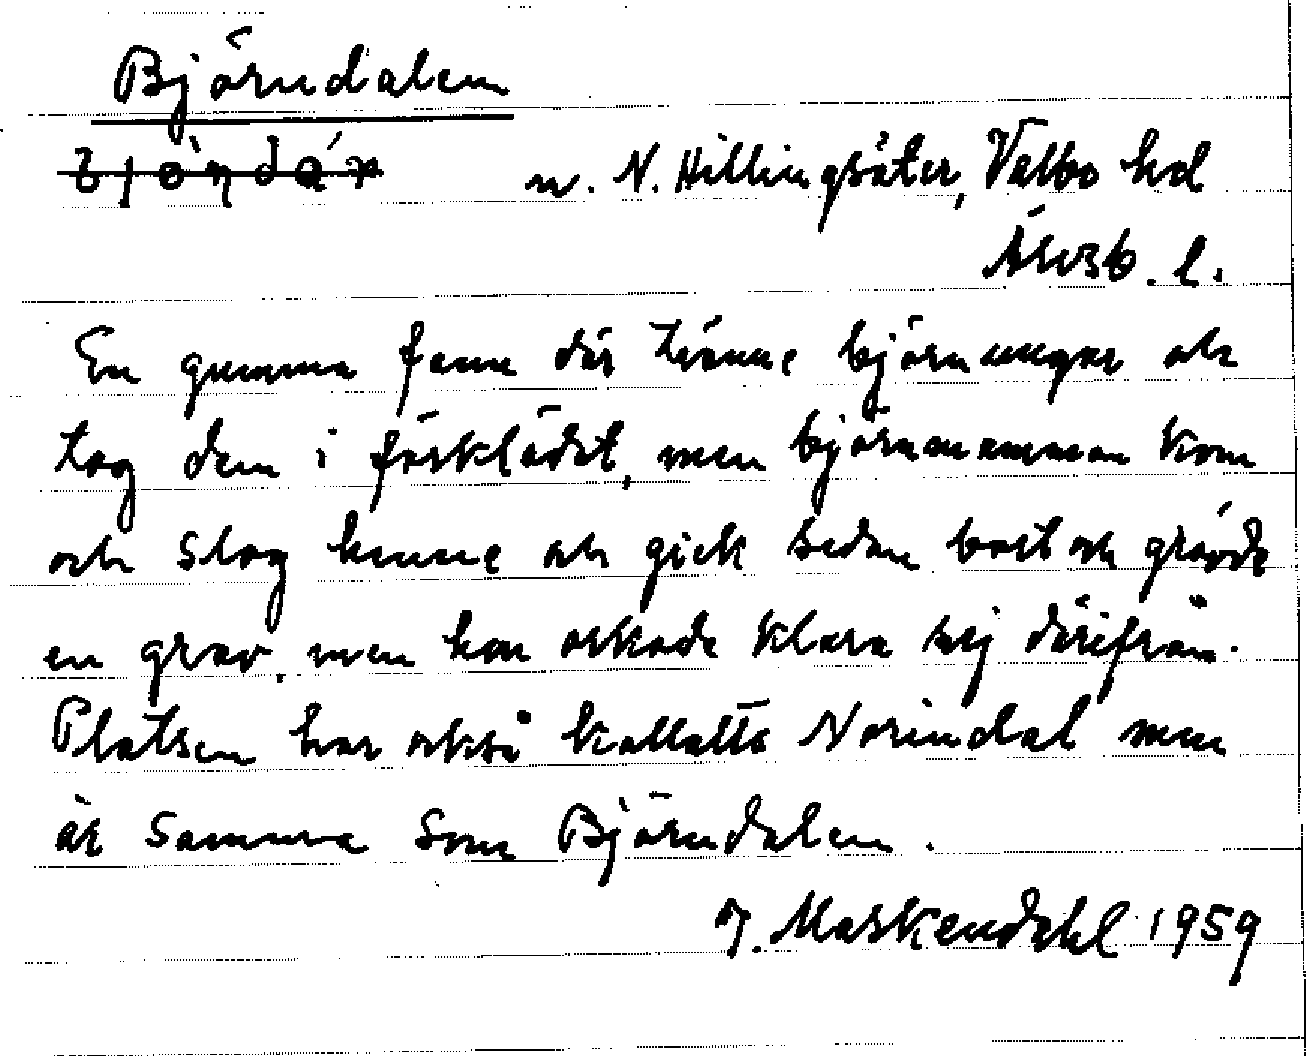 Björndalen
n. N. Hillingsäter, Valbo hd
Älvsb. l.
En gumma fann där tvänne björnungar och
tog dem i förklädet, men björnmamman kom
och slog henne och gick sedan bort och grävde
en grav, men hon orkade klara sig därifrån.
Platsen har också kallats Norindal men
är samma som Björndalen.
J. Maskendahl 1959